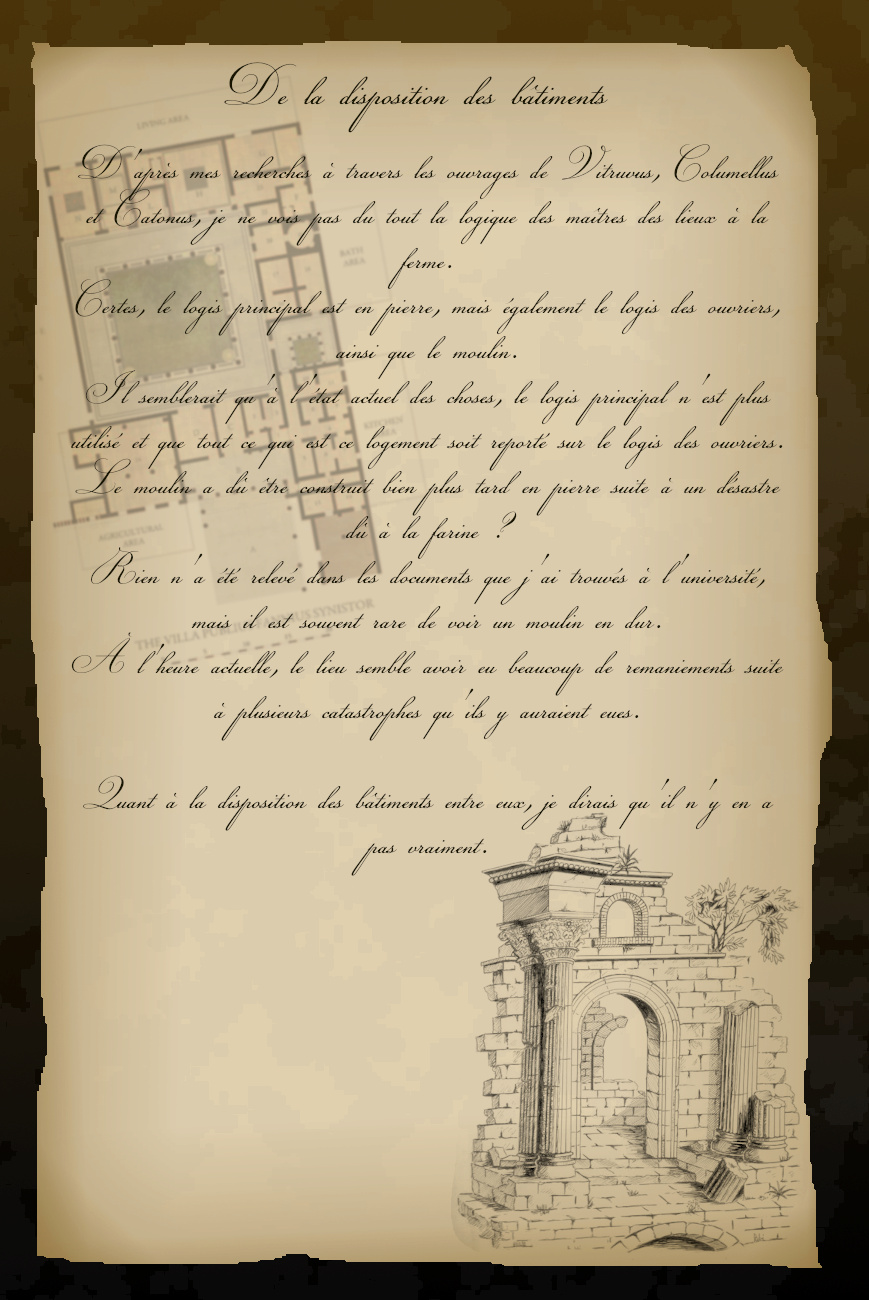 De la disposition des bâtiments
D'après mes recherches à travers les ouvrages de Vitruvus, Columellus
et Catonus, je ne vois pas du tout la logique des maîtres des lieux à la
ferme.
Certes, le logis principal est en pierre, mais également le logis des ouvriers,
ainsi que le moulin.
Il semblerait qu'à l'état actuel des choses, le logis principal n'est plus
utilisé et que tout ce qui est ce logement soit reporté sur le logis des ouvriers.
Le moulin a dû être construit bien plus tard en pierre suite à un désastre
dû à la farine ?
Rien n'a été relevé dans les documents que j'ai trouvés à l'université,
mais il est souvent rare de voir un moulin en dur.
À l'heure actuelle, le lieu semble avoir eu beaucoup de remaniements suite
à plusieurs catastrophes qu'ils y auraient eues.
Quant à la disposition des bâtiments entre eux, je dirais qu'il n'y en a
pas vraiment.
LIVING AREA
BATH
AREA
KITCHEN
AGRICULTURAL
AREA
THE VILLA SYNISTOR